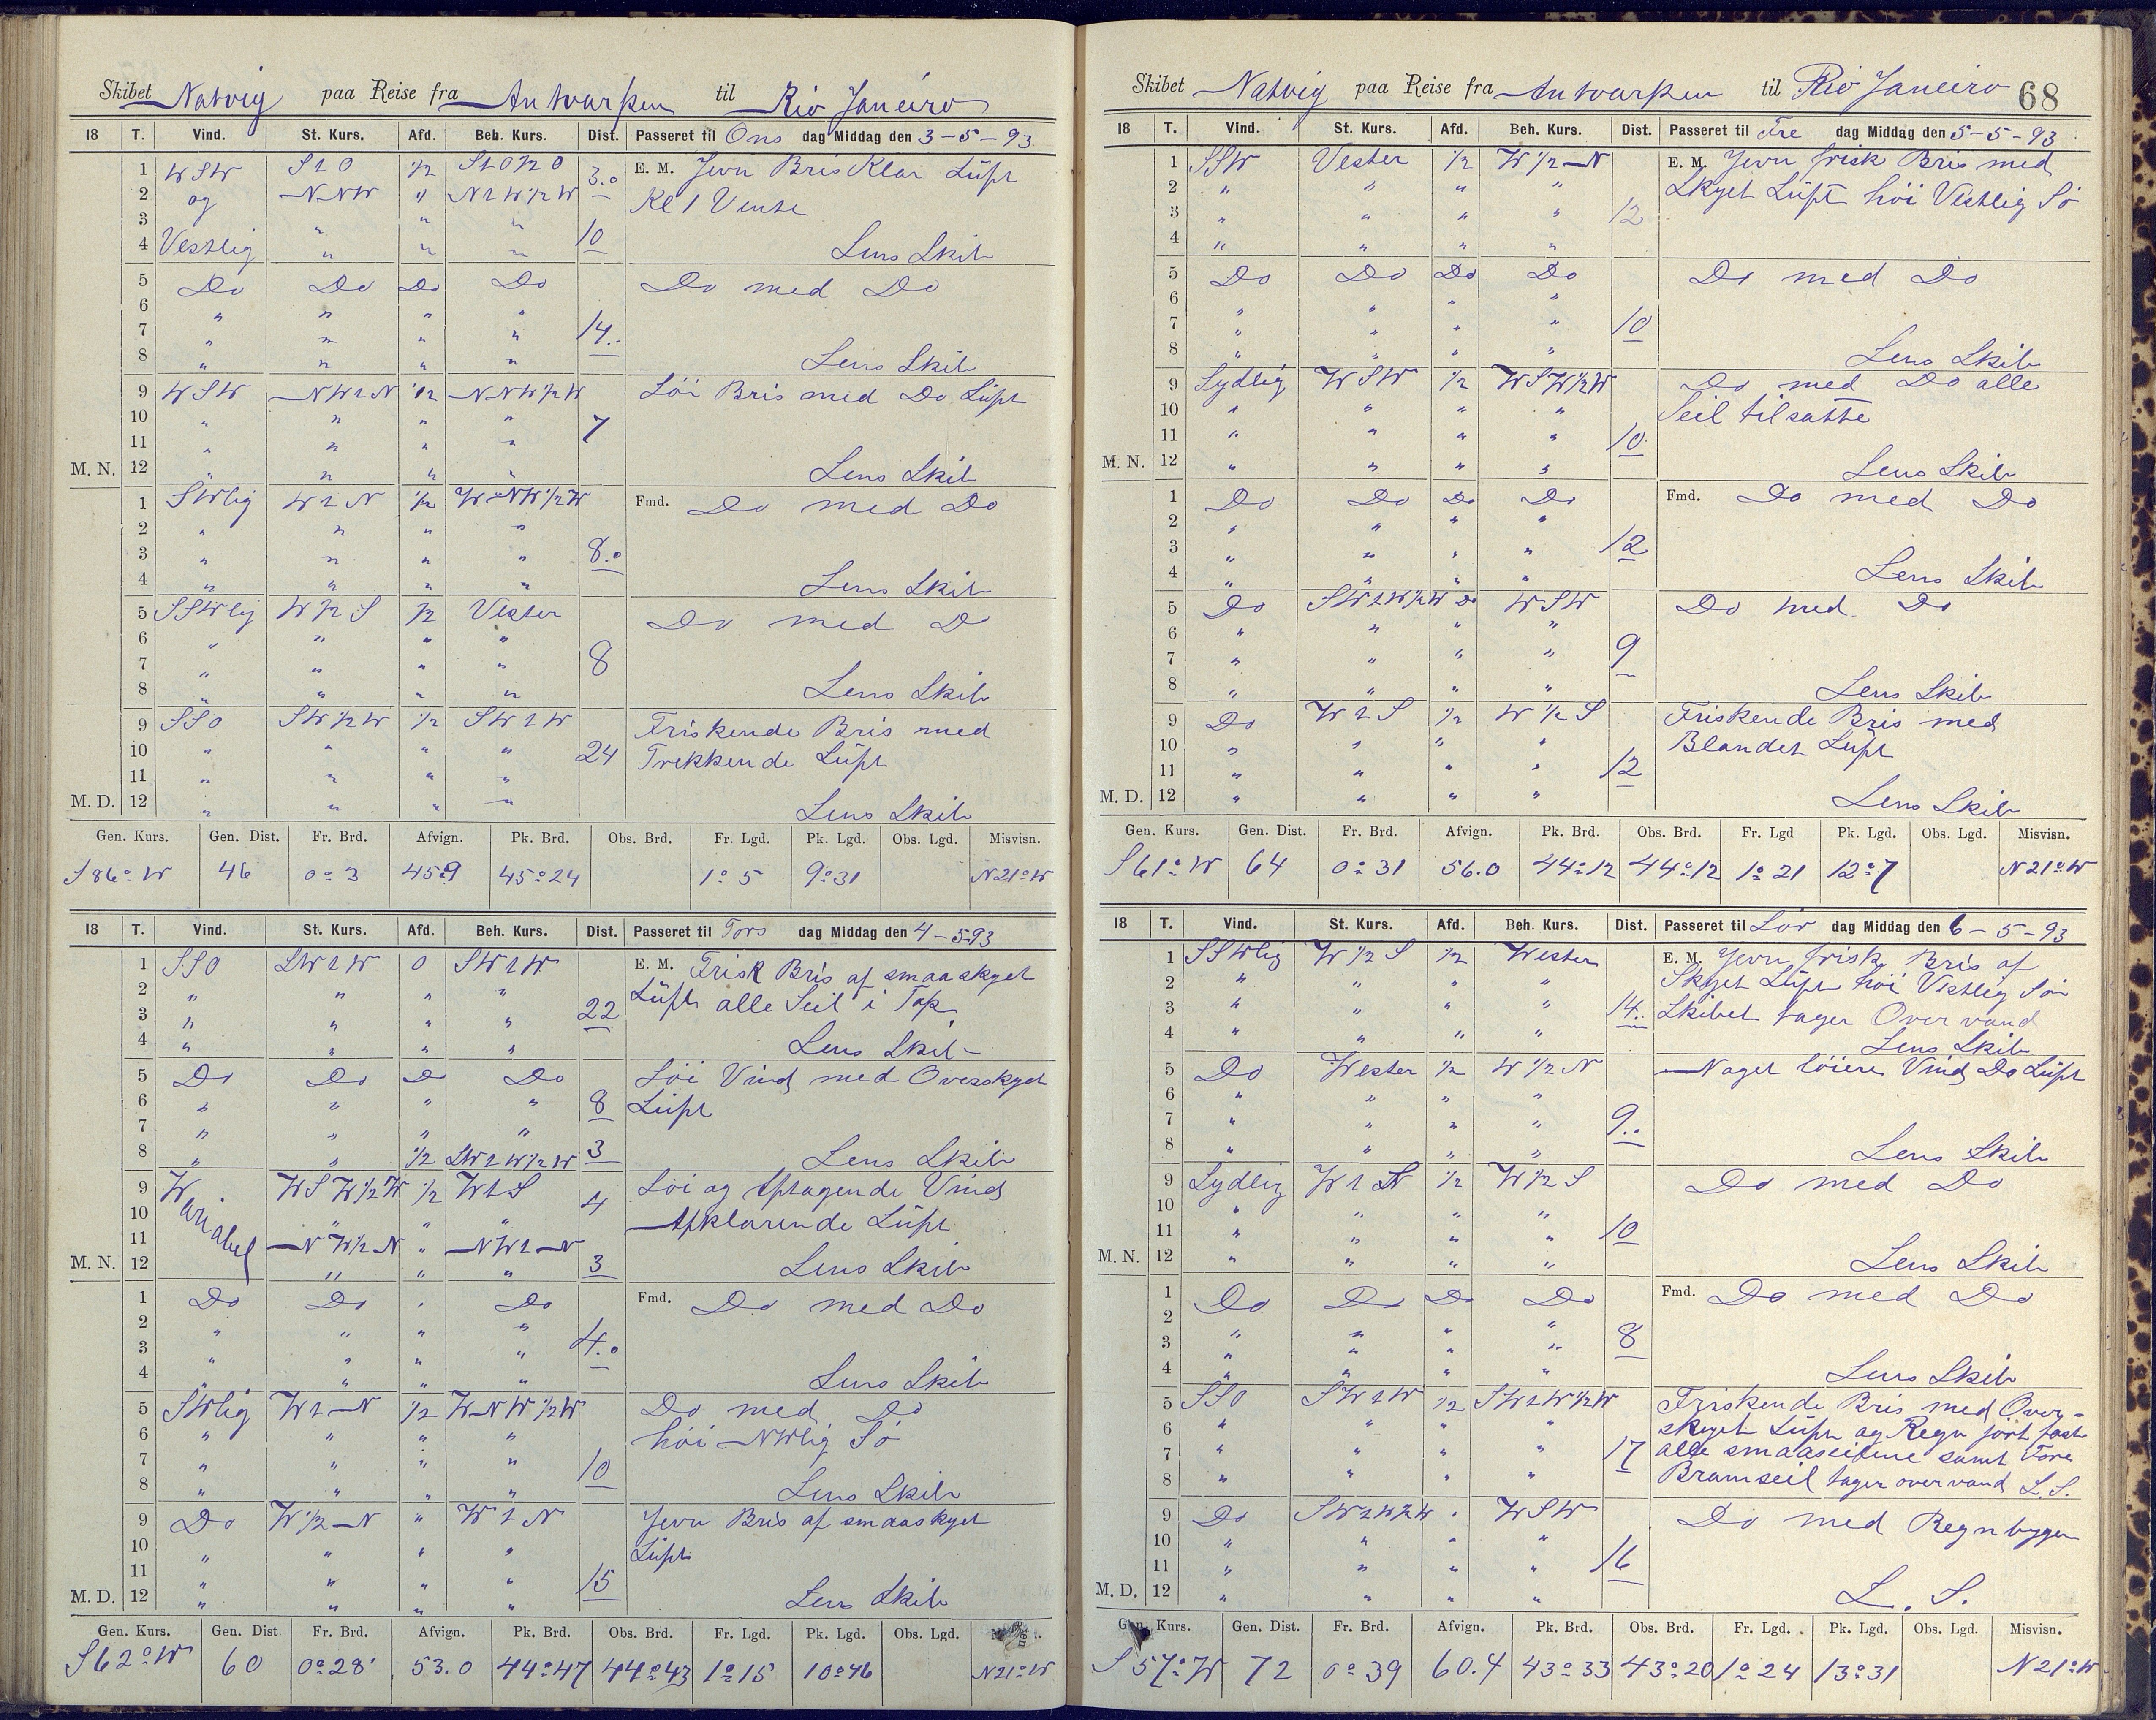 Skibet Natvig paa Reise fra Antvarpen til Rio Janeiro
18 T. Vind. St. Kurs. Afd. Beh. Kurs. Dist. Passeret til Ons dag Middag den 3-5-93
1 WSW S1O 1/2 S1O1/2O 3.0 E. M. Jevn Bris Klar Lüft
2 og NNW " N1W1/2W Kl 1 Vente
3 " " "
4 Vestlig " " " 10 Lens Skib
5 Do Do Do Do Do med Do
6 " " " "
7 " " " " 14..
8 " " " " Lens Skib
9 WSW NW1N 1/2 NNW1/2W Löi Bris med Do Lüft
10 " " " " 7
11 " " " "
M. N. 12 " " " " Lens Skib
1 SWlig W1N 1/2 WNW1/2W Fmd. Do med Do
2 " " " "
3 " " " " 8.0
4 " " " " Lens Skib
5 SSWlig W1/2S 1/2 Vester Do med D
6 " " " "
7 " " " " 8
8 " " " " Lens Skib
9 SSO SW1/2W 1/2 SW1W Friskende Bris med
10 " " " " 24 Trekkende Lüft
11 " " " "
M. D. 12 " " " " Lens Skib
Gen. Kurs. Gen. Dist. Fr. Brd. Afvign. Pk. Brd. Obs. Brd. Fr. Lgd. Pk. Lgd. Obs. Lgd. Misvisn.
S86°W 46 0°3 45.9 45°24 1°5 9°31 N21°W
18 T. Vind. St. Kurs. Afd. Beh. Kurs. Dist. Passeret til Tors dag Middag den 4-5-93
1 SSO SW1W 0 SW1W E. M. Frisk Bris af smaaskyet
2 " " " " 22 Lüft alle Seil i Top
3 " " " "
4 " " " " Lens Skib
5 Do Do Do Do Löi Vind med Overskyet
6 " " " " 8 Lüft
7 " " " "
8 " " 1/2 SW1W1/2W 3 Lens Skib
9 Wariabel WSW1/2W 1/2 W1S 4 Löi og Aftagende Vind
10 " " " Afklarende Lüft
11 NW1/2N " NW1N
M. N. 12 " " " 3 Lens Skib
1 Do Do " Do Fmd. Do med Do
2 " " " "
3 " " " " 4.0
4 " " " " Lens Skib
5 SWlig W1N 1/2 WNW1/2W Do med Do
6 " " " " höi NWlig Sö
7 " " " " 10
8 " " " " Lens Skib
9 Do W1/2N " W1N Jevn Bris af smaaskyet
10 " " " " Lüft
11 " " " " 15
M. D. 12 " " " " Lens Skib
Gen. Kurs. Gen. Dist Fr. Brd. Afvign. Pk. Brd. Obs. Brd. Fr. Lgd. Pk. Lgd. Obs. Lgd.
S62°W 60 0°28' 53.0 44°47 44°43 1°15 10°46 N21°W
Skibet Natvig paa Reise fra Antvarpen til Rio Janeiro 68
18 T. Vind. St. Kurs. Afd. Beh. Kurs. Dist. Passeret til Fre dag Middag den 5-5-93
1 SSW Vester 1/2 W1/2N E. M. Jevn frisk Bris med
2 " " " " Skyet Lüft höi Vestlig Sö
3 " " " " 12
4 " " " "
5 Do Do Do Do Do med Do
6 " " " "
7 " " " " 10
8 " " " " Lens Skib
9 Sydlig WSW 1/2 WSW1/2W Do med Do alle
10 " " " " Seil tilsatte
11 " " " " 10
M. N. 12 " " " " Lens Skib
1 Do Do Do Do Fmd. Do med Do
2 " " " "
3 " " " " 12
4 " " " " Lens Skib
5 Do SW1W1/2W Do WSW Do med Do
6 " " " "
7 " " " " 9
8 " " " " Lens Skib
9 Do W1S 1/2 W1/2S Friskende Bris med
10 " " " " Blandet Lüft
11 " " " " 12
M. D. 12 " " " " Lens Skib
Gen. Kurs. Gen. Dist. Fr. Brd. Afvign. Pk. Brd. Obs. Brd. Fr. Lgd Pk. Lgd. Obs. Lgd. Misvisn.
S61°W 64 0°31 56.0 44°12 44°12 1°21 12°7 N21°W
18 T. Vind. St. Kurs. Afd. Beh. Kurs. Dist. Passeret til Lör dag Middag den 6-5-93
1 SSWlig W1/2S 1/2 Wester E. M. Jevn frisk Bris af
2 " " " " Skyet Lüft höi Vestlig Sö
3 " " " " 14.. Skibet tager Over vand
4 " " " " Lens Skib
5 Do Wester 1/2 W1/2N Noget löiere Vind Do Lüft
6 " " " "
7 " " " " 9..
8 " " " " Lens Skib
9 Sydlig W1S 1/2 W1/2S Do med Do
10 " " " "
11 " " " " 10
M. N. 12 " " " " Lens Skib
1 Do Do Do Do Fmd. Do med Do
2 " " " "
3 " " " " 8
4 " " " " Lens Skib
5 SSO SW1W 1/2 SW1W1/2W Friskende Bris med Over-
6 " " " " skyet Lüft og Regn jört fast
7 " " " " 17 alle smaaseilene samt Fore
8 " " " " Bramseil tager overvand L.S.
9 Do SW1W1/2W " WSW Do med Regnbyger
10 " " " "
11 " " " " 16
M. D. 12 " " " " L. S.
Gen. Kurs. Gen. Dist. Fr. Brd. Afvign. Pk. Brd. Obs. Brd. Fr. Lgd. Pk. Lgd. Obs. Lgd. Misvisn.
S57°W 72 0°39 60.4 43°33 43°20 1°24 13°31 N21°W